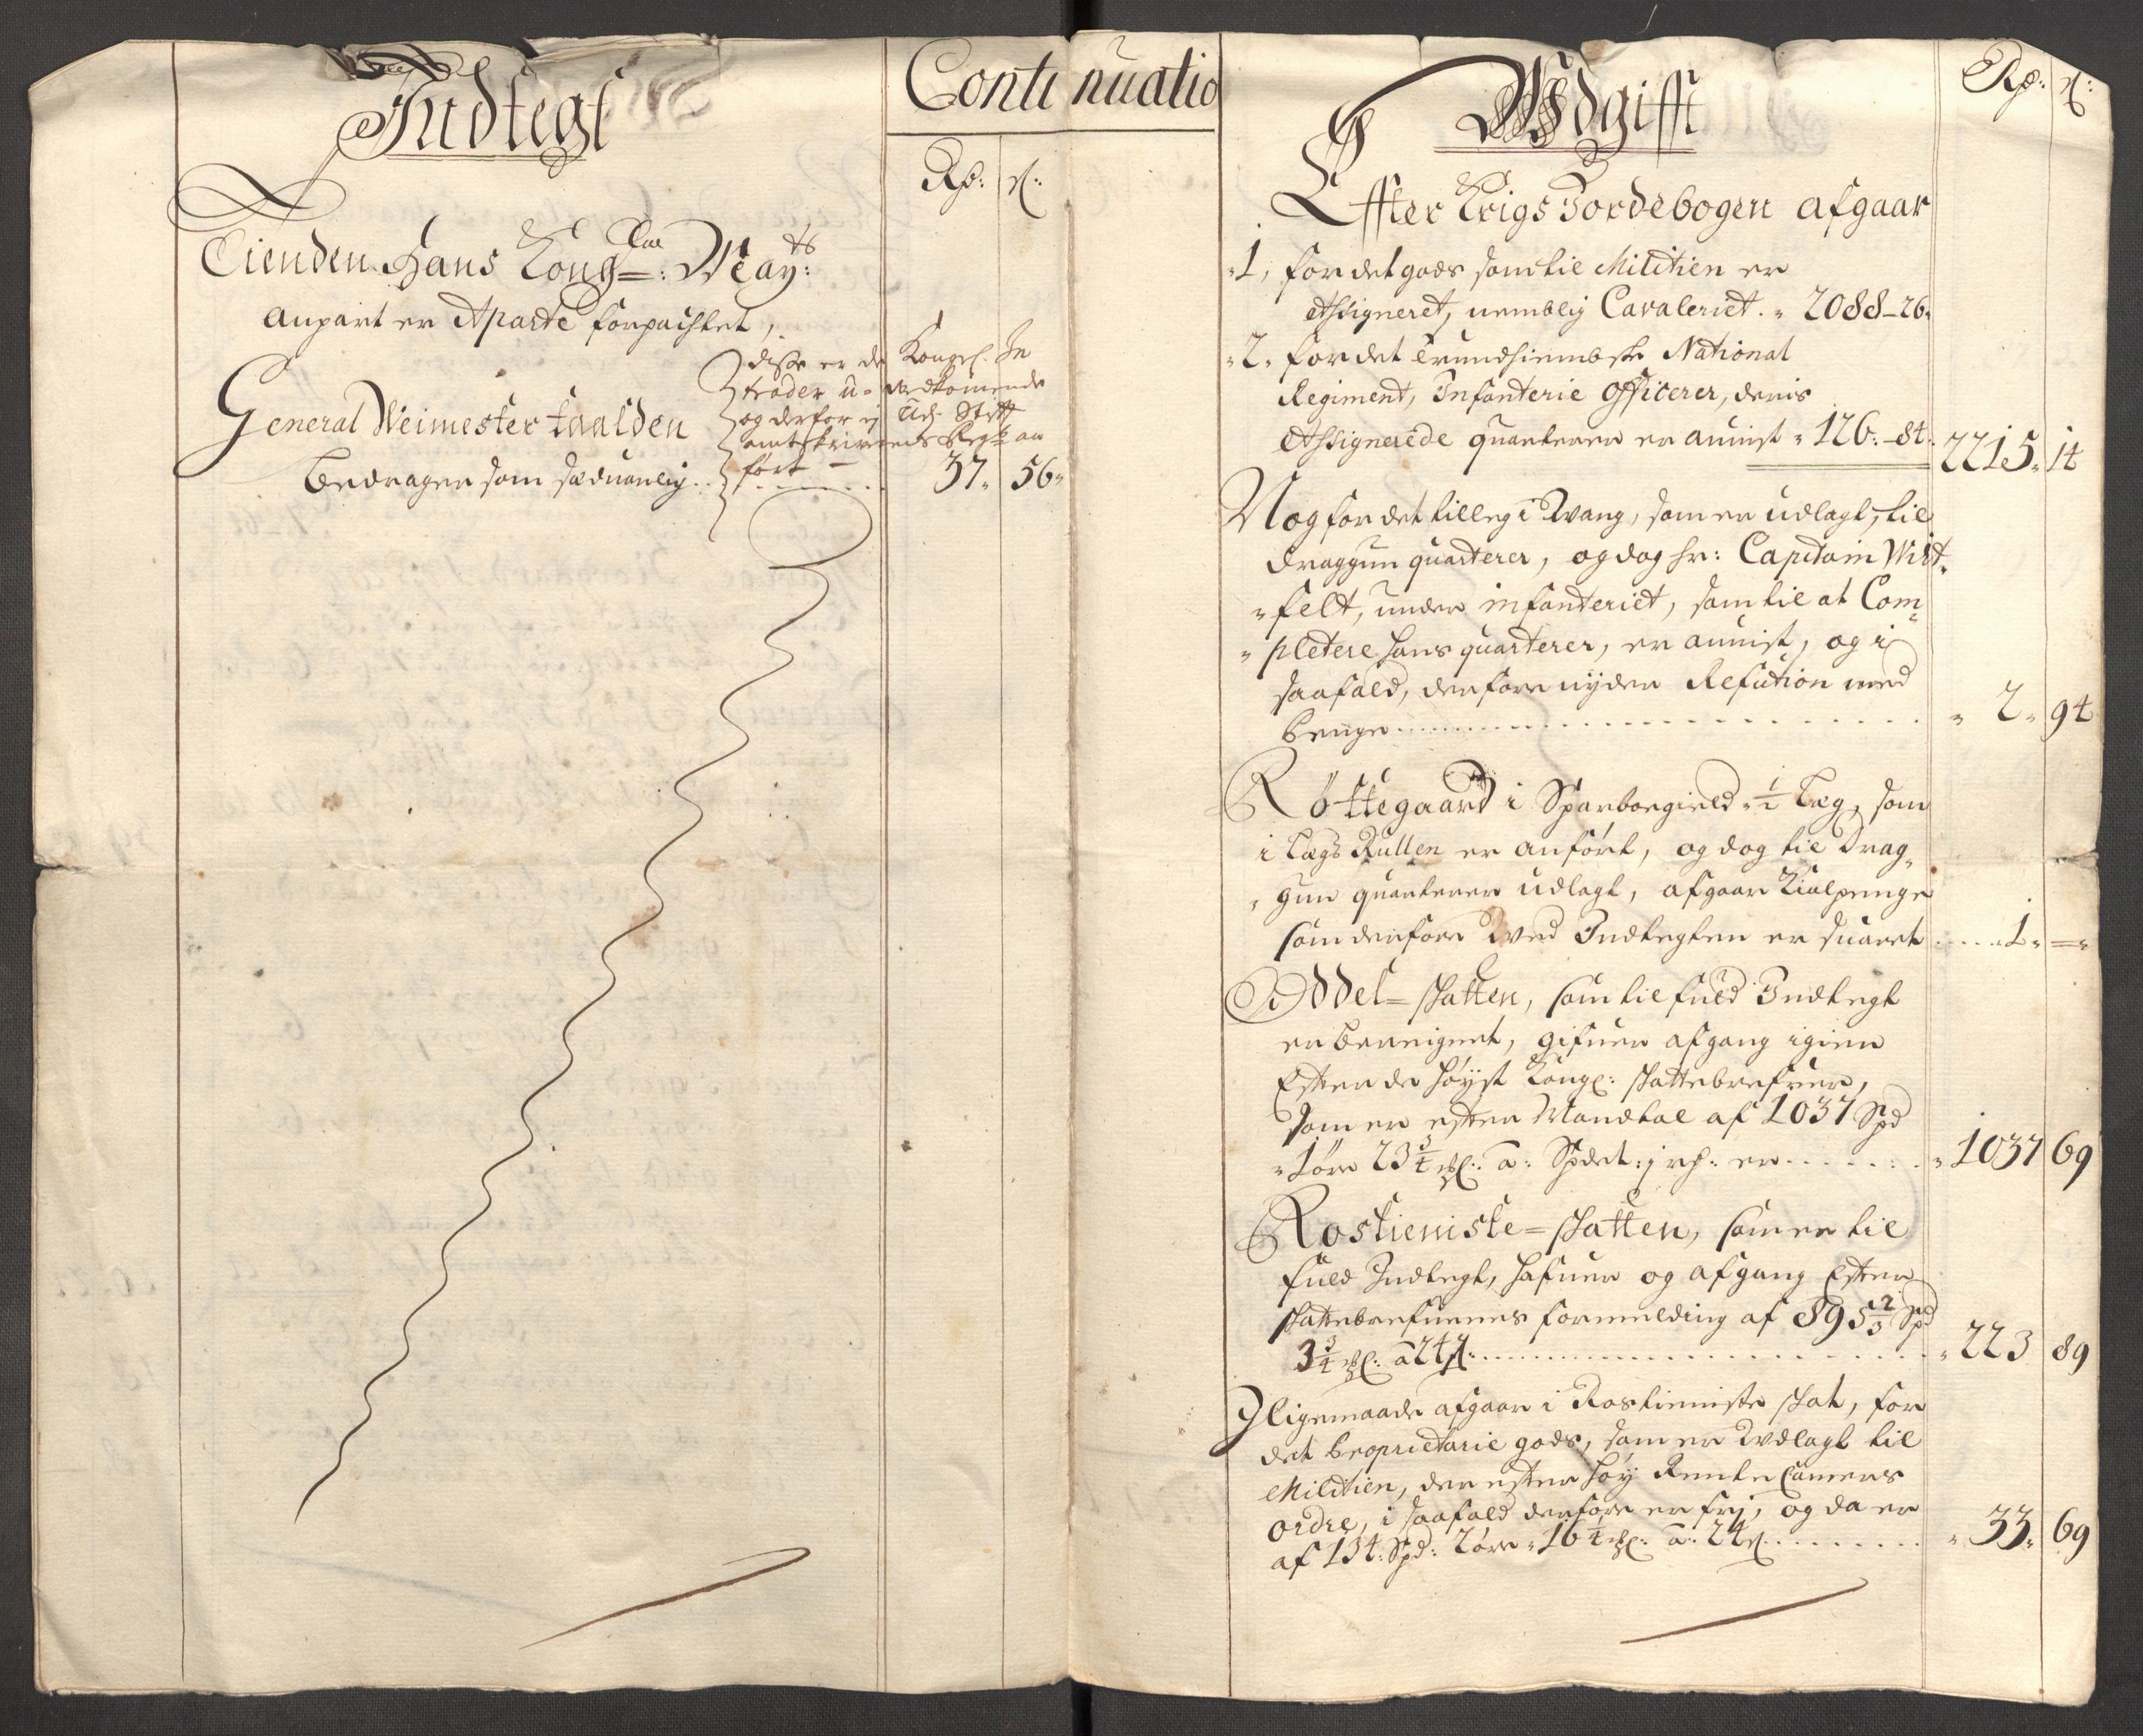 Indtegt
Continuatio
Rd: s:
Tienden Hans Kongl: May:ts
anpart er Aparte forpachtet,
General Veimester taalden
bedrager som sædvanlig . . 37. 56.
disse er de Kongel: In
trader u-vedkommende
og derfor ej udj Stift
amtskrivrens Regsk: an
fört —
Udgifft
Rd: s:
Effter Krigs Jordebogen afgaar
1, for det gods som til Militien er
Assigneret, nemblig Cavaleriet. 2088-26.
2. for det Trundhiembske National
Regiment, Infanterie Officerer, deris
Assignerede quarterer er anvist 126:-84. 2215. 14
Nog for det tilleg i Wang, som er udlagt, til
Draggun quarterer, og dog hr: Capitain Wit-
felt, under infanteriet, som til at Com-
pletere hans quarterer, er anvist, og i
saafald, derfore nyder Refution med
penge . . . 2. 94
Röttegaard i Sparboegield 1/2 Læg, som
i Lægs Rullen er anfört, og dog til Drag-
gun quarterer udlagt, afgaar Kiolpenge
som derfore wed Indtegten er svaret . . . . 1. =
Oddel=skatten, som til fuld Indtegt
er beregnet, gifver afgang igien
Efter de höyst Kongl: skattebrefver,
som er efter Mandtal af 1037 Spd
1 öre 23 3/4 ml: a: Spdet: j rd: er . . . . 1037 69
Rostieniste=skatten, som er til
fuld Indtegt, hafver og afgang Efter
skattebrefvenes formelding af 895 2/3 Spd
3 3/4 ml: a 24 s: . . . 223 89
Jligemaade afgaar i Rostienniste skat, for
det beoprietarie gods, som er Udlagt til
Militien, der efter höy Rente Camers
ordre, i saafald derfore er frj, og da er
af 134: Spd: 2 öre 16 1/4 ml: a: 24 s . . . 33. 69